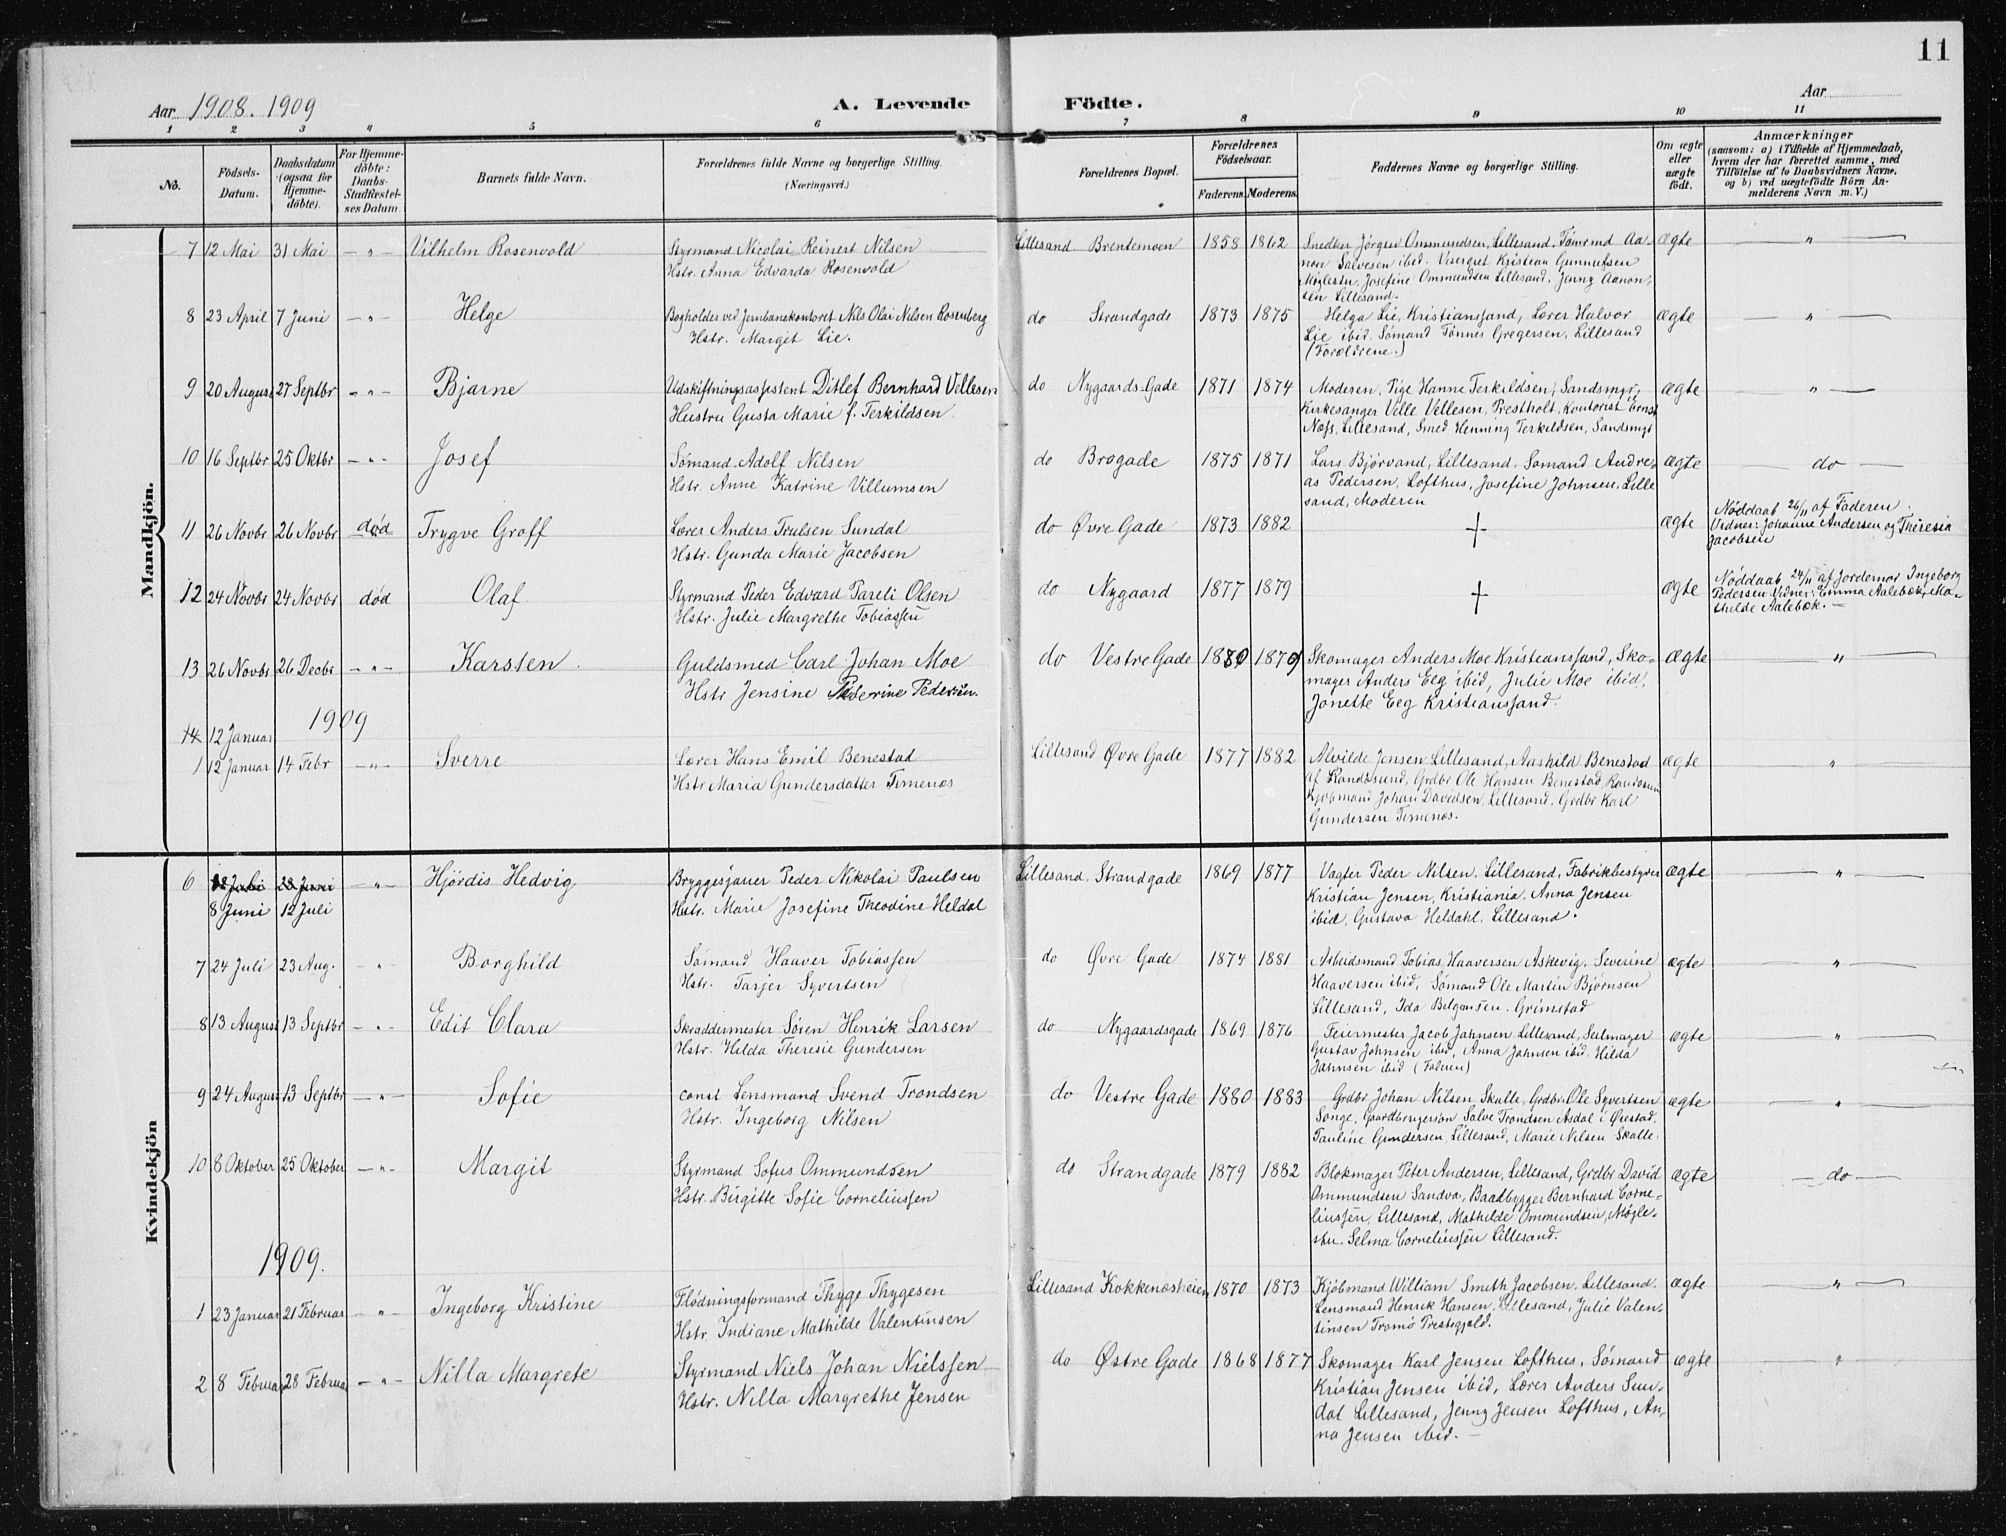 11
Aar 1908. 1909 A. Levende Födte. Aar
1 2 3 4 5 6 7 8 9 10 11
No. Födsels-Datum. Daabsdatum (ogsaa for Hjemme-döbte). For Hjemme-döbte: Daabs-Stadfæstel-ses Datum. Barnets fulde Navn. Forældrenes fulde Navne og borgerlige Stilling. (Næringsvei.) Forældrenes Bopæl. Forældrenes Födselsaar. Faderens. Moderens. Faddernes Navne og borgerlige Stilling. Om ægte eller uægte födt. Anmærkninger (saasom: a) i Tilfælde af Hjemmedaab, hvem der har forrettet samme, med Tilföielse af to Daabsvidners Navne, og b) ved uægtefödte Börn An-melderens Navn m. V.)
Mandkjön.
7 12 Mai 31 Mai — " — Vilhelm Rosenvold Styrmand Nicolai Reinert Nilsen Lillesand Brentemoen 1858 1862 Snedker Jörgen Ommundsen, Lillesand, Tömrmd Aa- ægte — " —
Hstr. Anna Edvarda Rosenvold non Salvesen ibid. Visergut Kristian Gunnufsen
Møglestu, Josefine Ommundsen Lillesand. Jenny Aanon-
sen Lillesand.
8 23 April 7 Juni — " — Helge Bogholder ved Jernbanekontoret Nils Olai Nilsen Rosenberg do Strandgade 1873 1875 Helga Lie, Kristianssand, Lærer Halvor ægte — " —
Hstr. Margit Lie. Lie ibid. Sømand Tönnes Gregersen, Lillesand
(Forældrene.)
9 20 August 27 Septbr — " — Bjarne Udskiftningsassistent Ditlef Bernhard Vellesen do Nygaards Gade 1871 1874 Moderen, Pige Hanne Terkildsen, Sandsmyr, ægte — " —
Hustru Gusta Marie f. Terkildsen. Kirkesanger Ville Vellesen, Prestholt, Kontorist Ernst
Næss, Lillesand, Smed Henning Terkildsen, Sandsmyr
10 16 Septbr 25 Oktbr — " — Josef Sömand Adolf Nilsen do Brogade 1875 1871 Lars Bjørvand, Lillesand, Sømand Andre- ægte — do —
Hstr. Anne Katrine Villumsen as Pedersen, Lofthus, Josefine Johnsen, Lille
sand, Moderen
11 26 Novbr 26 Novbr død Trygve Groff Lærer Anders Trulsen Sundal do Øvre Gade 1873 1882 + ægte Nøddaab 26/11 af Faderen.
Hstr. Gunda Marie Jacobsen Vidner: Johanne Andersen og Theresia
Jacobsen
12 24 Novbr 24 Novbr død Olaf Styrmand Peder Edvard Pareli Olsen do Nygaard 1877 1879 + ægte Nøddaab 24/11 af Jordemor Ingeborg
Hstr. Julie Margrethe Tobiassen Pedersen. Vidner: Emma Aalebæk, Ma-
thilde Aalebæk. —
13 26 Novbr 26 Decbr — " — Karsten Guldsmed Carl Johan Moe do Vestre Gade 1880 1879 Skomager Anders Moe Kristianssand, Sko- ægte — " —
Hstr Jensine Pederine Pedersen. mager Anders Eeg ibid, Julie Moe ibid,
Jonette Eeg Kristianssand.
1909
14 12 Januar
1 12 Januar 14 Febr — " — Sverre Lærer Hans Emil Benestad Lillesand Øvre Gade 1877 1882 Alvilde Jensen Lillesand, Aashild Benestad ægte "
Hstr Maria Gundersdatter Timenes af Randøsund, Grdbr Ole Hansen Benestad, Randøsund
Kjøbmand Johan Davidsen, Lillesand, Grdbr Karl
Gundersen Timenes.
Kvindekjön
6 18 Juli 28 Juni — " — Hjördis Hedvig Bryggesjauer Peder Nikolai Paulsen Lillesand. Strandgade 1869 1877 Vagter Peder Nilsen, Lillesand, Fabrikbestyrer ægte — " —
8 Juni 12 Juli Hstr. Marie Josefine Theodine Heldal Kristian Jensen, Kristiania, Anna Jensen
ibid, Gustava Heldahl, Lillesand.
7 24 Juli 23 Aug. " Borghild Sømand Haaver Tobiassen do Øvre Gade 1874 1881 Arbeidsmand Tobias Haaversen Askevig, Severine ægte — " —
Hstr. Tarjer Syvertsen Haaversen ibid, Sömand Ole Martin Bjørnsen
Lillesand, Ida Belgonsen. Grimstad
8 13 August 13 Septbr " Edit Clara Skræddermester Søren Henrik Larsen do Nygaardsgade 1869 1876 Feiermester Jacob Jahnsen Lillesand, Seilmager ægte — " —
Hstr. Hilda Theresie Gundersen Gustav Johnsen ibid, Anna Jahnsen ibid. Hilda
Jahnsen ibid (Faderen)
9 24 August 13 Septbr — " — Sofie const Lensmand Svend Trondsen do Vestre Gade 1880 1883 Grdbr Johan Nilsen Skalle, Grdbr Ole Syvertsen ægte — " —
Hstr. Ingeborg Nilsen Songe, Gaardbrugersøn Salve Trondsen Asdal i Øiestad,
Pauline Gundersen Lillesand, Marie Nilsen Skalle.
10 8 Oktober 25 Oktober — " — Margit Styrmand Sofus Ommundsen do Strandgade 1879 1882 Blokmager Peter Andersen, Lillesand, Grdbr David ægte — do —
Hstr. Birgitte Sofie Corneliussen Ommundsen Sandva, Baadbygger Bernhard Corne-
liussen, Lillesand, Mathilde Ommundsen, Møgle-
stu. Selma Corneliussen Lillesand.
1909.
1 23 Januar 21 Februar — " — Ingeborg Kristine Flödningsformand Thyge Thygesen Lillesand Kokkenesheien 1870 1873 Kjøbmand William Smith Jacobsen, Lillesand, ægte — " —
Hstr. Indiane Mathilde Valentinsen Lensmand Henrik Hansen, Lillesand, Julie Valen-
tinsen Tromö Prestegjeld.
2 8 Februar 28 Februar — " — Nilla Margrete Styrmand Niels Johan Nielssen do Østre Gade 1868 1877 Skomager Karl Jensen Lofthus, Sömand ægte — " —
Hstr. Nilla Margrethe Jensen Kristian Jensen ibid, Lærer Anders Sun-
dal Lillesand, Jenny Jensen Lofthus, An-
na Jensen ibid. —